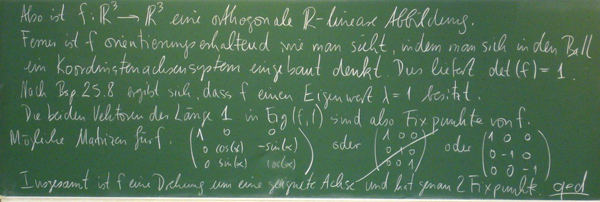 Also ist f: ℝ³ → ℝ³ eine orthogonale ℝ-lineare Abbildung.
Ferner ist f orientierungserhaltend wie man sieht, indem man sich in den Ball
ein Koordinatenachsensystem eingebaut denkt. Dies liefert det(f) = 1.
Nach Bsp 25.8 ergibt sich, dass f einen Eigenwert λ = 1 besitzt.
Die beiden Vektoren der Länge 1 in Eig(f,1) sind also Fixpunkte von f.
Mögliche Matrizen für f. (1 0 0 / 0 cos(α) -sin(α) / 0 sin(α) cos(α)) oder (1 0 0 / 0 1 0 / 0 0 1) oder (1 0 0 / 0 -1 0 / 0 0 -1)
Insgesamt ist f eine Drehung um eine geeignete Achse und hat genau 2 Fixpunkte. qed